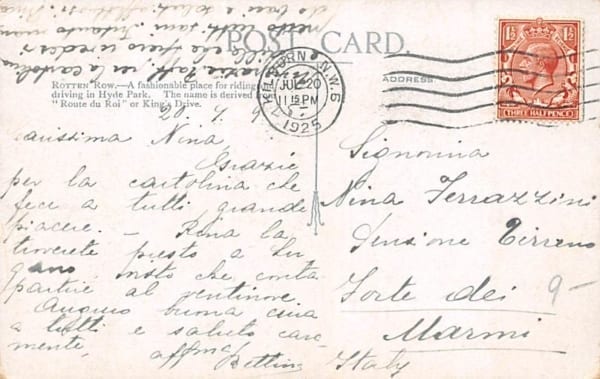 POST CARD.
ROTTEN ROW.—A fashionable place for riding
driving in Hyde Park. The name is derived
"Route du Roi" or King's Drive.
ADDRESS.
KILBURN. N.W.6
JUL 20
11 15 PM
1925
THREE HALF PENCE
1½ 1½
Carissima Nina
Grazie
per la cartolina che
fece a tutti grande
piacere. — Rina la
troverete presto a Lu
gano visto che conta
partire al ventinove.
Auguro buona cura
a tutti e saluto cara
mente,
affma
Bettina
Signorina
Nina Terrazzini
Pensione Tirreno
Forte dei 9-
Marmi
Italy